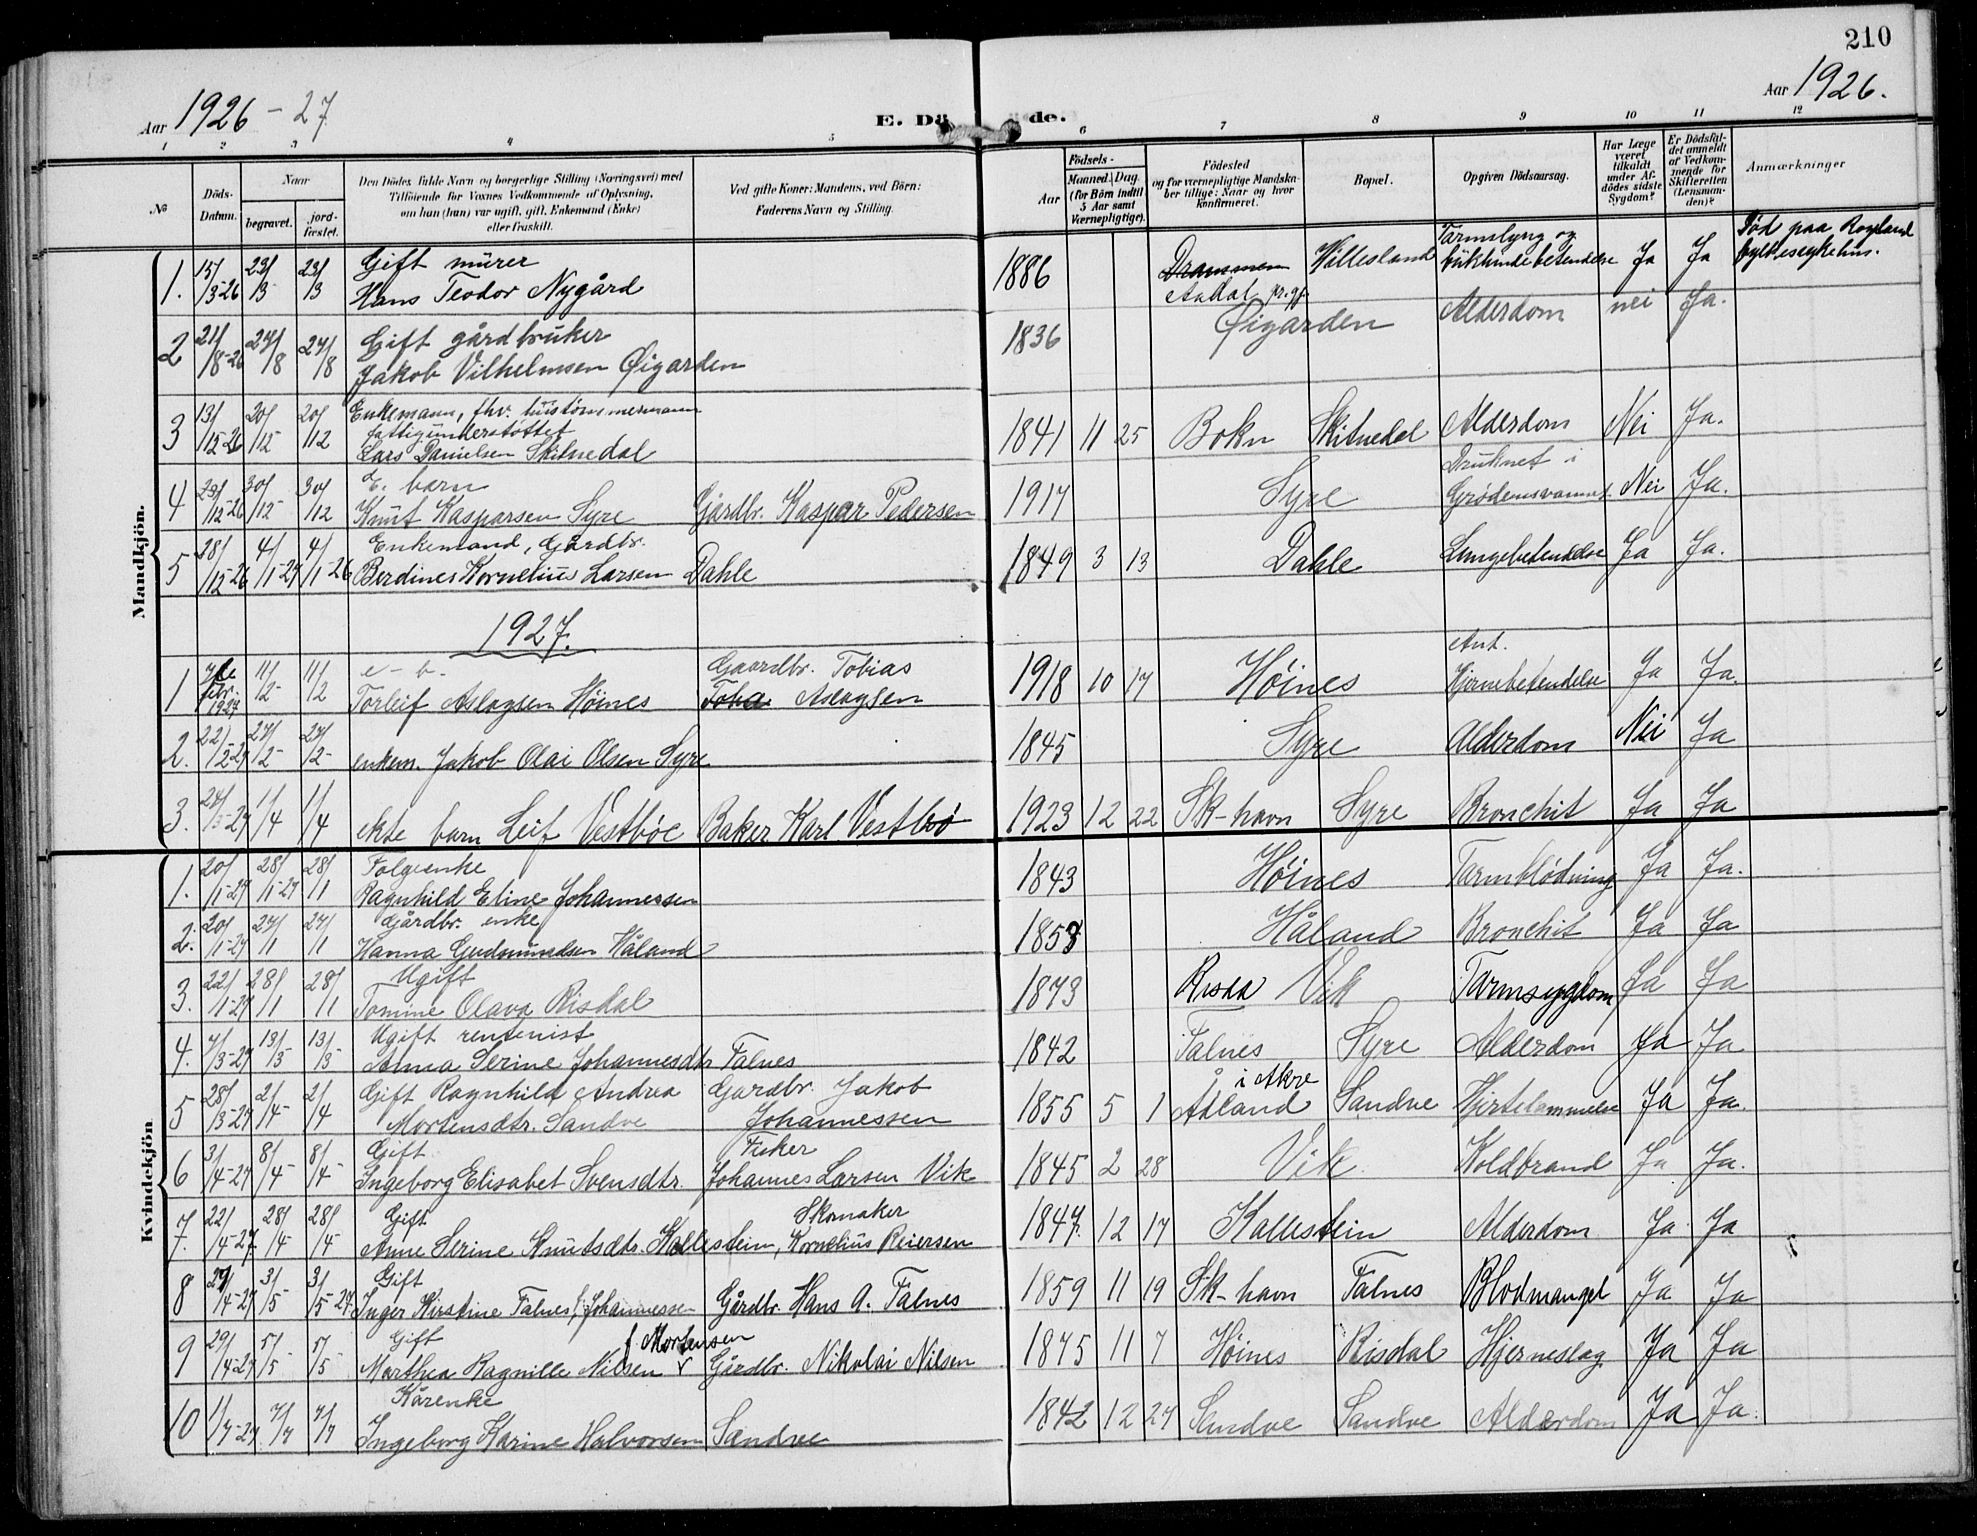 210
Aar 1926 - 27
E. Dö de.
Aar 1926.
1 2 3 4 5 6 7 8 9 10 11 12
№
Döds-Datum.
Naar
begravet.
jord-fæstet.
Den Dödes fulde Navn og borgerlige Stilling (Næringsvei) med
Tilföiende for Voxnes Vedkommende af Oplysning,
om han (hun) var ugift, gift, Enkemand (Enke)
eller fraskilt.
Ved gifte Koner: Mandens, ved Börn:
Faderens Navn og Stilling.
Födsels-
Aar
Maaned. Dag.
(for Börn indtil
5 Aar samt
Værnepligtige).
Födested
og for værnepligtige Mandska-
ber tillige: Naar og hvor
konfirmeret.
Bopæl.
Opgiven Dödsaarsag.
Har Læge
været
tilkaldt
under Af-
dödes sidste
Sygdom?
Er Dödsfal-
det anmeldt
af Vedkom-
mende for
Skifteretten
(Lensman-
den)?
Anmærkninger
Mandkjön.
1. 15/3-26 23/3 23/3 Gift mürer
Hans Teodor Nygård 1886 Drammen Aadal pr.gj. Vallesland Tarmslyng og
bükhindebetendelse Ja Ja Död paa Rogaland
fylkessykehus.
2 21/8-26 27/8 27/8 Gift gårdbruker
Jakob Vilhelmsen Øigarden 1836 Øigarden Alderdom nei Ja.
3 13/12-26 20/12 20/12 Enkemann, fhv. hustömmermann
fattigunderstöttet
Lars Danielsen Skitnedal 1841 11 25 Bokn Skitnedal Alderdom Nei Ja.
4 23/12-26 30/12 30/12 E. barn
Knut Kasparsen Syre Gårdbr. Kaspar Pedersen 1917 Syre Druknet i
Grödemsvannet. Nei Ja.
5 28/12-26 4/1-27 4/1-26 Enkemand, Gårdbr.
Berdines Kornelius Larsen Dahle 1849 3 13 Dahle Lungebetendelse Ja Ja.
1927.
1 7de febr. 1927 11/2 11/2 e - b.
Torleif Aslagsen Höines Gaardbr. Tobias
Toha Aslagsen 1918 10 17 Höines Ant.
Hjernebetendelse Ja Ja.
2. 22/2-27 27/2 27/2 enkem. Jakob Olai Olsen Syre 1845 Syre Alderdom Nei Ja
3. 24/3-27 1/4 1/4 ekte barn Leif Vestböe Baker Karl Vestbö 1923 12 22 Sk-havn Syre Bronchit Ja Ja
Kvindekjön
1. 20/1-27 28/1-27 28/1 Folgeenke
Ragnhild Eline Johannessen 1843 Höines Tarmblödning Ja Ja.
2. 20/1-27 27/1 27/1 Gårdbr. enke
Hanna Gudmundsen Håland 1858 Håland Bronchit Ja Ja
3. 22/1-27 28/1 28/1 Ugift
Tomine Olava Risdal 1873 Risda Vik Tarmsygdom Ja Ja
4. 7/3-27 13/3 13/3 Ugift rentenist
Anna Serine Johannesdtr Falnes 1842 Falnes Syre Alderdom Ja Ja
5 28/3-27 2/4 2/4 Gift Ragnhild Andrea
Mortensdtr. Sandve Gardbr. Jakob
Johannessen 1855 5 1 Ådland i Akre Sandve Hjertelammelse Ja Ja.
6 3/4-27 8/4 8/4 Gift
Ingeborg Elisabet Svensdtr. Fisker
Johannes Larsen Vik 1845 2 28 Vik Koldbrand Ja Ja.
7. 22/4-27 28/4 28/4 Gift
Anne Serine Knutsdtr. Kallestein, Skomaker
Kornelius Reiersen 1847. 12 17 Kallestein Alderdom Ja Ja
8 27/4-27 3/5 3/5-27 Gift
Inger Kirstine Falnes f. Johannessen Gårdbr. Hans A. Falnes 1859 11 19 Sk-havn Falnes Blodmangel Ja Ja
9 29/4-27 5/5 5/5 Gift
Marthea Ragnille Nilsen f. Mortensen Gårdbr. Nikolai Nilsen 1845 11 7 Höines Risdal Hjerneslag Ja Ja
10 1/7-27 7/7 7/7 Kårenke
Ingeborg Karine Halvorsen Sandve 1842 12 27 Sandve Sandve Alderdom Ja Ja.